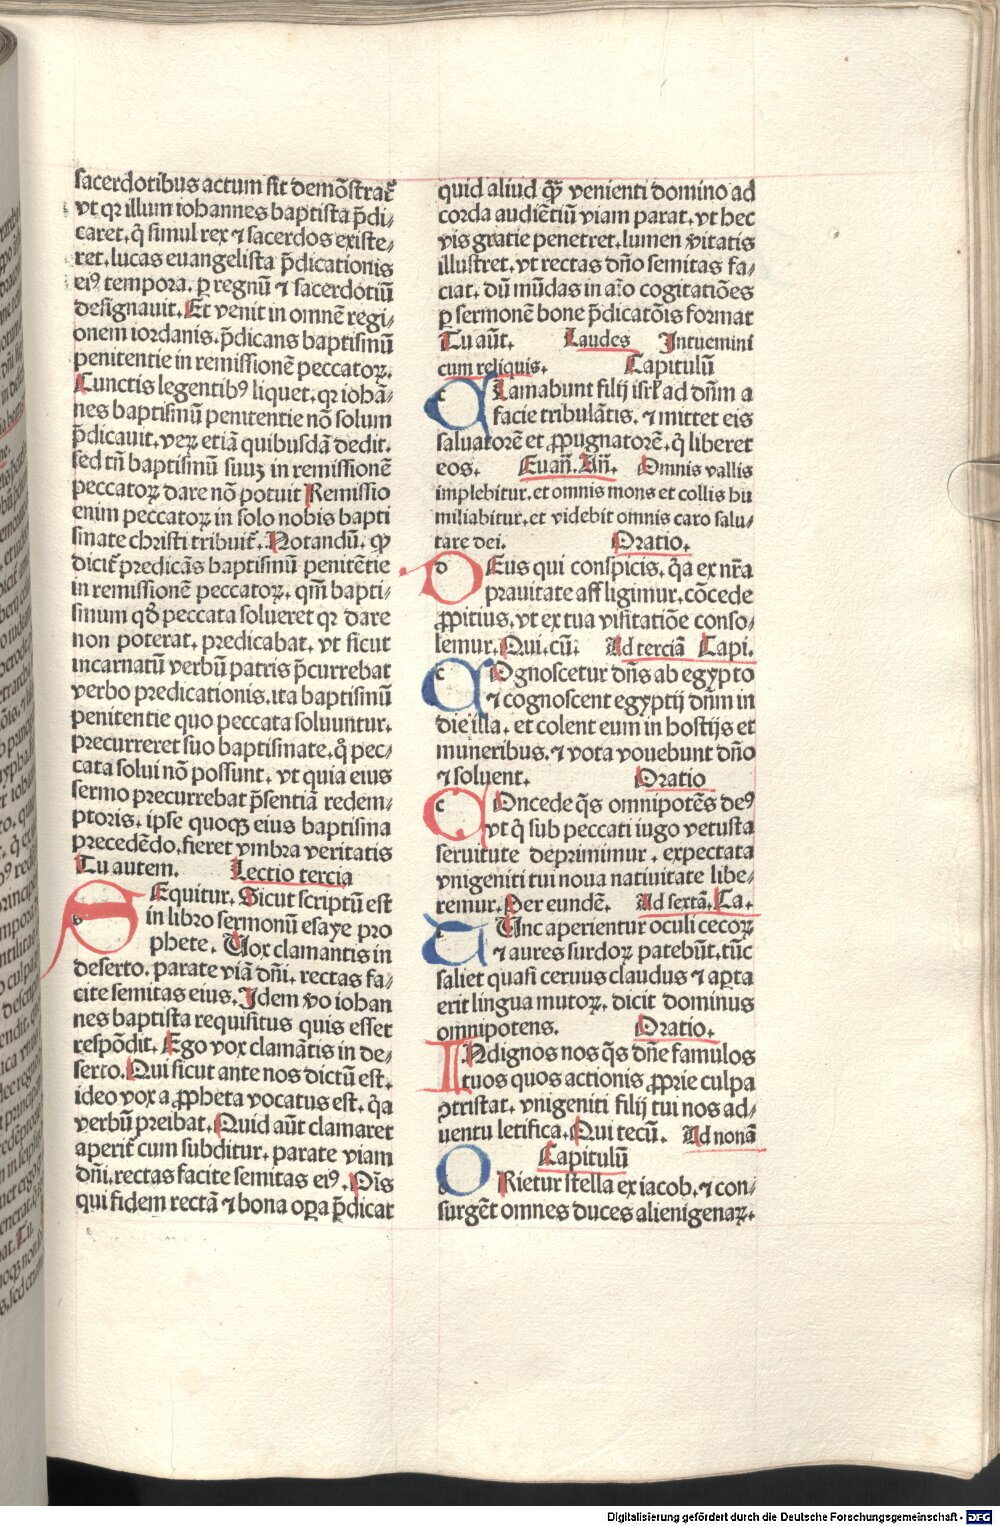 sacerdotibus actum sit demõstrar̃
vt qꝛ illum iohannes baptista p̃di/
caret. q̃ simul rex ⁊ sacerdos existe/
ret. lucas euangelista p̃dicationis
eiꝰ tempora. ꝑ regnũ ⁊ sacerdotiũ
designauit. Et venit in omnẽ regi/
onem iordanis. p̃dicans baptismũ
penitentie in remissionẽ peccatoꝝ.
Cunctis legentibꝰ liquet. qꝛ iohã/
nes baptismũ penitentie nõ solum
p̃dicauit. veꝝ etiã quibusdã dedit.
sed tñ baptismũ suuꝫ in remissionẽ
peccatoꝝ dare nõ potuit Remissio
enim peccatoꝝ in solo nobis bapti
smate christi tribuit̃. Notandũ. ꝙ
dicit̃ predicãs baptismũ penitẽtie
in remissionẽ peccatoꝝ. qm̃ bapti/
smum qð peccata solueret qꝛ dare
non poterat. predicabat. vt sicut
incarnatũ verbũ patris p̃currebat
verbo predicationis. ita baptismũ
penitentie quo peccata soluuntur.
precurreret suo baptismate. q̊ pec/
cata solui nõ possunt. vt quia eius
sermo precurrebat p̃sentiã redem/
ptoris. ipse quoqꝫ eius baptisma
precedẽdo. fieret vmbra veritatis
Tu autem. Lectio tercia
SEquitur. Sicut scriptũ est
in libro sermonũ esaye pro
phete. Uox clamantis in
deserto. parate viã dñi. rectas fa/
cite semitas eius. Idem v̊o iohan
nes baptista requisitus quis esset
respõdit. Ego vox clamãtis in de/
serto. Qui sicut ante nos dictũ est.
ideo vox a ꝓpheta vocatus est. q̃a
verbũ preibat. Quid aũt clamaret
aperit̃ cum subditur. parate viam
dñi. rectas facite semitas eiꝰ. Õis
qui fidem rectã ⁊ bona oꝑa p̃dicat
quid aliud qꝙ̃ venienti domino ad
corda audiẽtiũ viam parat. vt hec
vis gratie penetret. lumen v̊itatis
illustret. vt rectas dño semitas fa/
ciat. dũ mũdas in aĩo cogitatiões
ꝑ sermonẽ bone p̃dicatõis format
Tu aũt. Laudes Intuemini
cum reliquis. Capitulũ
CLamabunt filij isrl̃ ad dñm a
facie tribulãtis. ⁊ mittet eis
saluatorẽ et ꝓpugnatorẽ. q̃ liberet
eos. Euañ. Añ. Omnis vallis
implebitur. et omnis mons et collis hu
miliabitur. et videbit omnis caro salu/
tare dei. Oratio.
DEus qui conspicis. q̃a ex nr̃a
prauitate affligimur. cõcede
ꝓpitius. vt ex tua visitatiõe conso/
lemur. Qui. cũ. Ad terciã Capi.
COgnoscetur dñs ab egypto
⁊ cognoscent egyptij dñm in
die illa. et colent eum in hostijs et
muneribus. ⁊ vota vouebunt dño
⁊ soluent. Oratio
COncede q̃s omnipotẽs deꝰ
vt q̃ sub peccati iugo vetusta
seruitute deprimimur. expectata
vnigeniti tui noua natiuitate libe/
remur. Per eundẽ. Ad sextã. Ca.
TUnc aperientur oculi cecoꝝ
⁊ aures surdoꝝ patebũt. tũc
saliet quasi ceruus claudus ⁊ aꝑta
erit lingua mutoꝝ. dicit dominus
omnipotens. Oratio.
INdignos nos q̃s dñe famulos
tuos quos actionis ꝓprie culpa
ꝯtristat. vnigeniti filij tui nos ad/
uentu letifica. Qui tecũ. Ad nonã
Capitulũ
ORietur stella ex iacob. ⁊ con/
surgẽt omnes duces alienigenaꝝ.
Digitalisierung gefördert durch die Deutsche Forschungsgemeinschaft - DFG